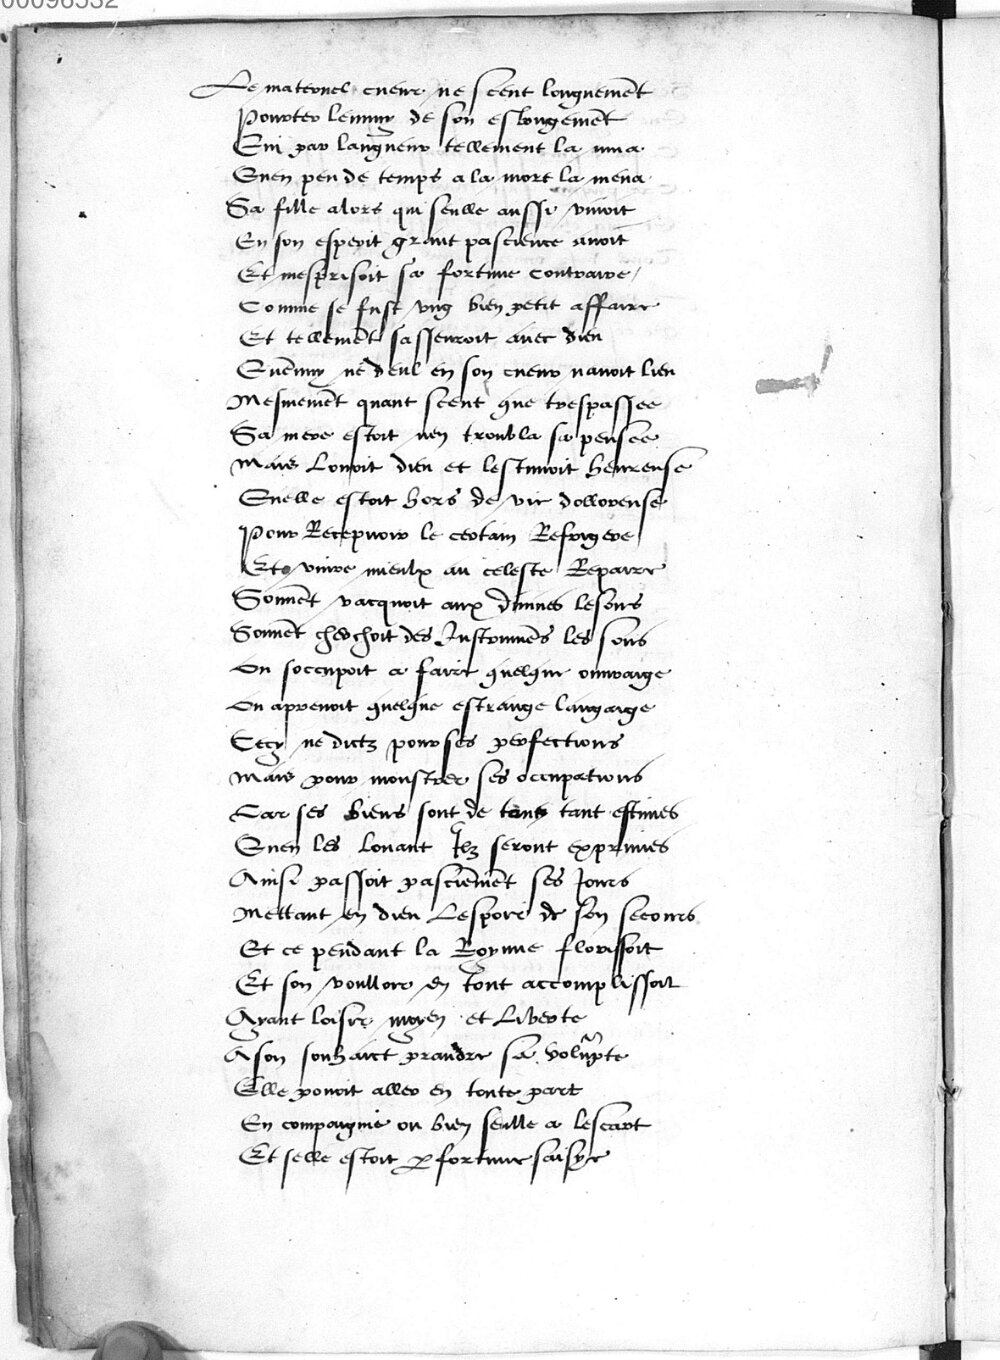 00096532
Le maternel cueur ne sceut longuemẽt
Pourter lennuy de son eslongemẽt
Qui par langueur tellement la mina
Quen peu de temps a la mort la mena
Sa fille alors qui seulle aussi vivoit
En son esperit grant pascience avoit
Et mesprisoit sa fortune contraire
Comme se fust ung bien petit affaire
Et tellemẽt sasseuroit avec dieu
Quẽnuy ne deul en son cueur navoit lieu
Mesmemẽt quant sceut que trespassee
Sa mere estoit nen troubla sa pensee
Mais Louoit dieu et lestimoit heureuse
Quelle estoit hors de vie dolloreuse
Pour Recepvoir le certain Refrigere
Et vivre mieulx au celeste Repaire
Souvẽt vacquoit aux divines lesons
Souvẽt cherchoit des Instrumẽs les sons
Ou soccupoit a faire quelque ouvraige
Ou aprenoit quelque estrange langaige
Cecy ne dictz pour ses perfections
Mais pour monstrer ses occupations
Car ses biens sont de tous tant estimes
Quen les louant Ilz seront exprimes
Ainsi passoit pasciemẽt ses Jours
Mettant en dieu Lespoir de son secours
Et ce pendant la Royne florissoit
Et son voulloir en tout accomplissoit
Ayant loisir moyen et Liberte
A son souhaict prandre sa volupte
Elle povoit aller en toute part
En compaignie ou bien seulle a lescart
Et selle estoit p fortune saisye